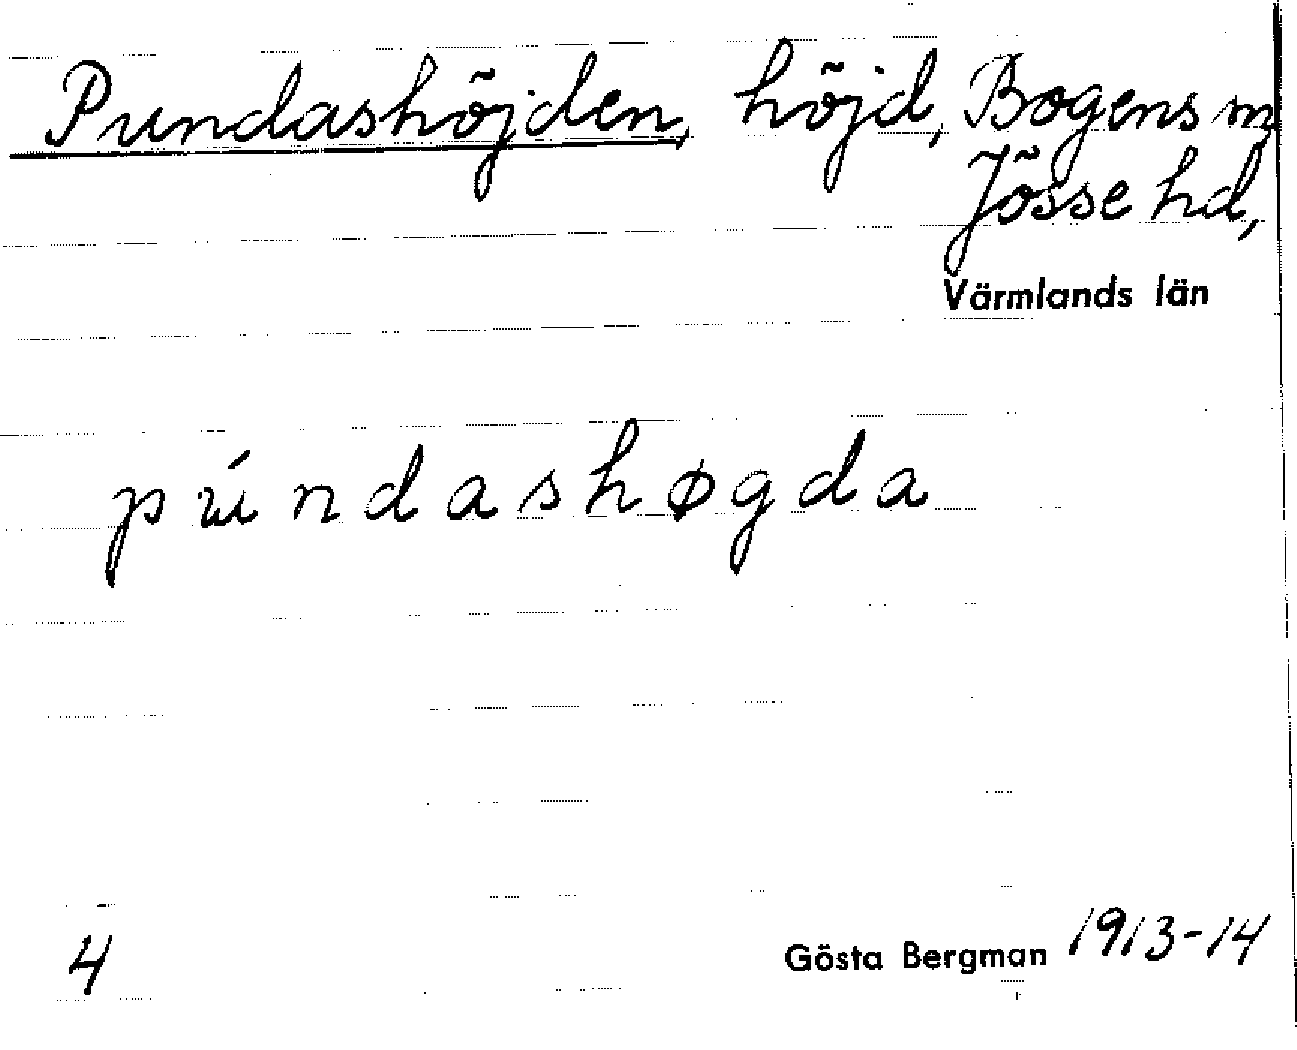 Pundashöjden, höjd, Bogens m
Jösse hd,
Värmlands län
púndashøgda
4
Gösta Bergman 1913-14